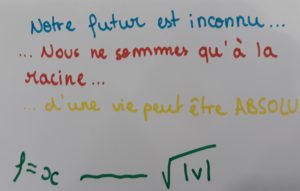 Notre futur est inconnu...
... Nous ne sommes qu'à la
racine...
... d'une vie peut être ABSOLU
f = x ——— √|v|